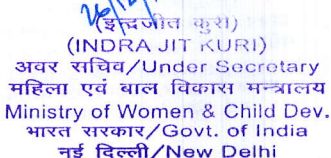 26/12
(इन्द्रजीत कुरी)
(INDRA JIT KURI)
अवर सचिव/Under Secretary
महिला एवं बाल विकास मन्त्रालय
Ministry of Women & Child Dev.
भारत सरकार/Govt. of India
नई दिल्ली/New Delhi